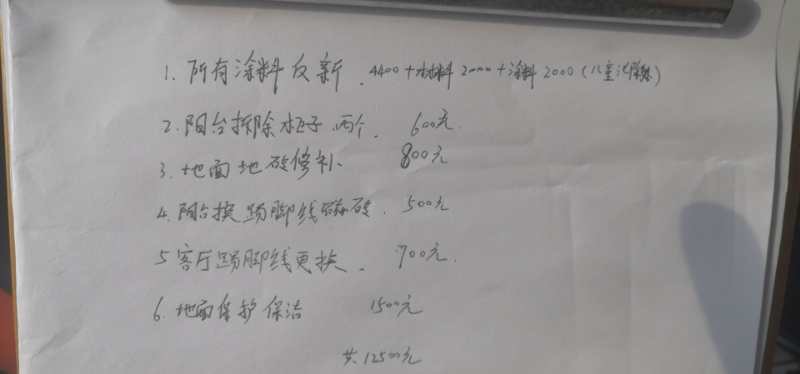 1. 所有涂料反新. 4400+材料2000+涂料2000(儿童漆
2. 阳台拆除柜子两个. 600元.
3. 地面地砖修补 800元
4. 阳台换踢脚线砖. 500元
5 客厅踢脚线更换. 700元.
6. 地面保护保洁 1500元
共12500元